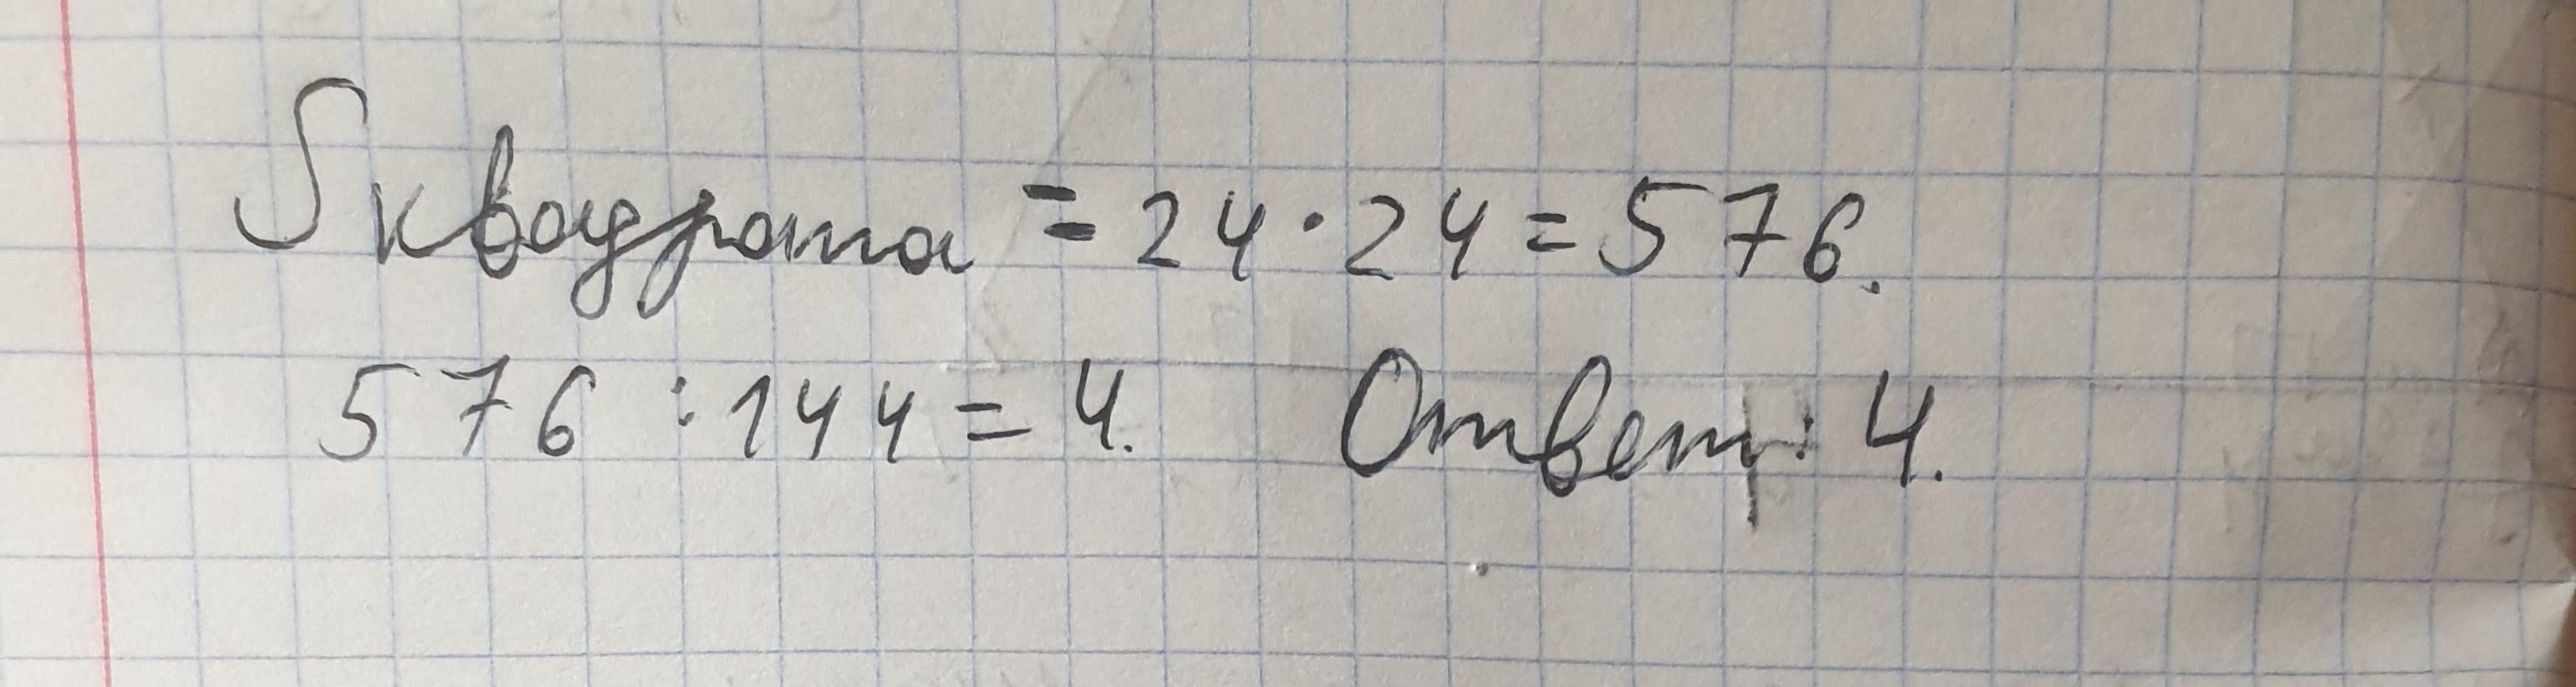 S квадрата = 24 · 24 = 576.
576 : 144 = 4. Ответ: 4.